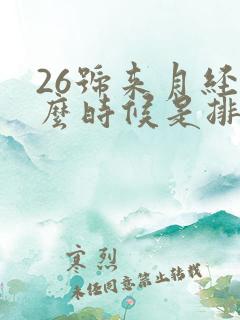 26號来月经
麼時候是排
寒烈
未经同意禁止转载